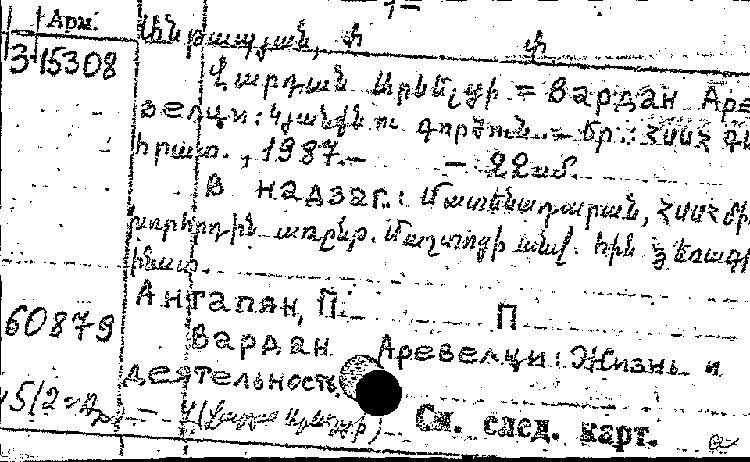 Арм.
3-15308
Անթապյան, Փ Փ
Վարդան Արևելցի = Вардан Аре
велци: Կյանքն ու գործուն. — Եր.: ՀՍՍՀ ԳԱ
հրատ., 1987.— — 22 սմ.
В надзаг.: Մատենադարան, ՀՍՍՀ մին.
խորհրդին առընթ. Մաշտոցի անվ. հին ձեռագր
ինստ.
Антапян, П. П
60879 Вардан Аревелци: Жизнь и
деятельность.
См. след. карт.